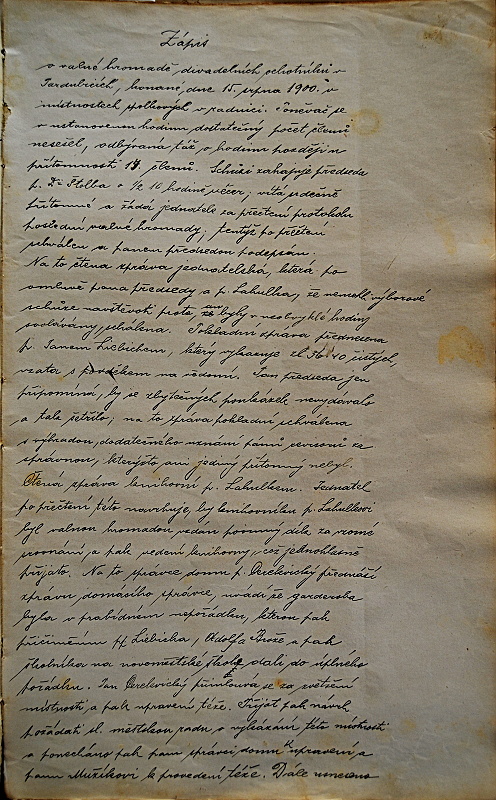 Zápis
o valné hromadě divadelních ochotníků v
Pardubicích, konané dne 15. srpna 1900. v
místnostech spolkových v radnici. Poněvač se
v ustanovenou hodinu dostatečný počet členů
nesešel, odbývaná táž o hodinu později za
přítomnosti 14 členů. Schůzi zahajuje předseda
p. Dr Štolba o ½ 10 hodině večer; vítá srdečně
přítomné a žádá jednatele za přečtení protokolu
poslední valné hromady; tentýž po přečtení
schválen a panem předsedou podepsán.
Na to čtena zpráva jednatelská, která po
omluvě pana předsedy a p. Lahulka, že nemohl výborové
schůze navštěvovati proto, že byly v neobvyklé hodiny
svolávány, schválena. Pokladní zpráva přednesena
p. Janem Liebichem, který vykazuje zl. 56·10 jistých,
vzata s povděkem na vědomí. Pan předseda jen
připomíná, by se zbytečných poukázek nevydávalo
a tak šetřilo; na to zpráva pokladní schválena
s výhradou, dodatečného uznání pánů revisorů za
správnou, kterýchž ani jediný přítomný nebyl.
Čtena zpráva knihovní p. Lahulkem. Jednatel
po přečtení této navrhuje, by knihovníku p. Lahulkovi
byl valnou hromadou vzdán povinný dík za
srovnání a pak vedení knihovny, což jednohlasně
přijato. Na to správce domu p. Cerekvický přednáší
zprávu domácího správce, uvádí že garderoba
byla v prabídném nepořádku, kterou pak
přičiněním pp. Liebicha, Adolfa Brože a pak
školníka na novoměstské škole, dali do úplného
pořádku. Pan Cerekvický přimlouvá se za zvětšení
místnosti a pak upravení téže. Přijat pak návrh
požádati sl. městskou radu o vykázání této místnosti
a ponecháno pak pánu správci domu k upravení a
panu Mužíkovi k provedení téže. Dále usneseno